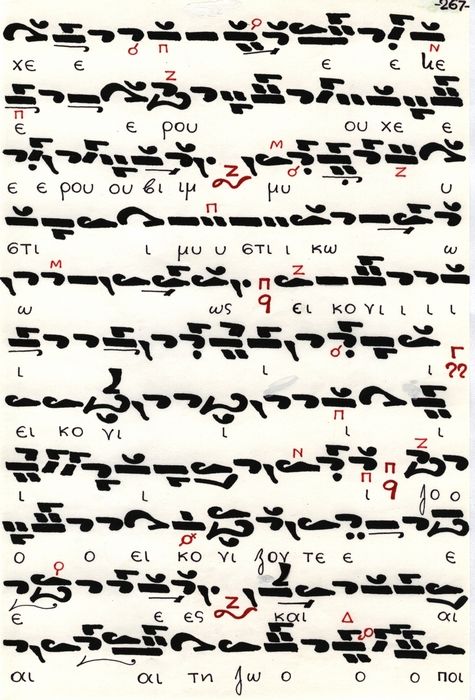 -267-
Π Ν
χε ε ε ε
Ζ
Π
ε ρου ου χε ε
Μ
Ζ Ζ
ε ε ρου ου βι ιμ μυ υ
Π
στι ι μυ υ στι ι κω ω
Μ Π Ζ
ω ως ει κο νι ι ι ι
ι ι ι Γ
Π
ει κο νι ι ι
Ν Π Π Ζ
ι ι ι ζο ο
ο ο ει κο νι ζον τε ε ε
Ζ
ε ε ες και αι
Δ
αι αι τη ζω ο ο ο ποι